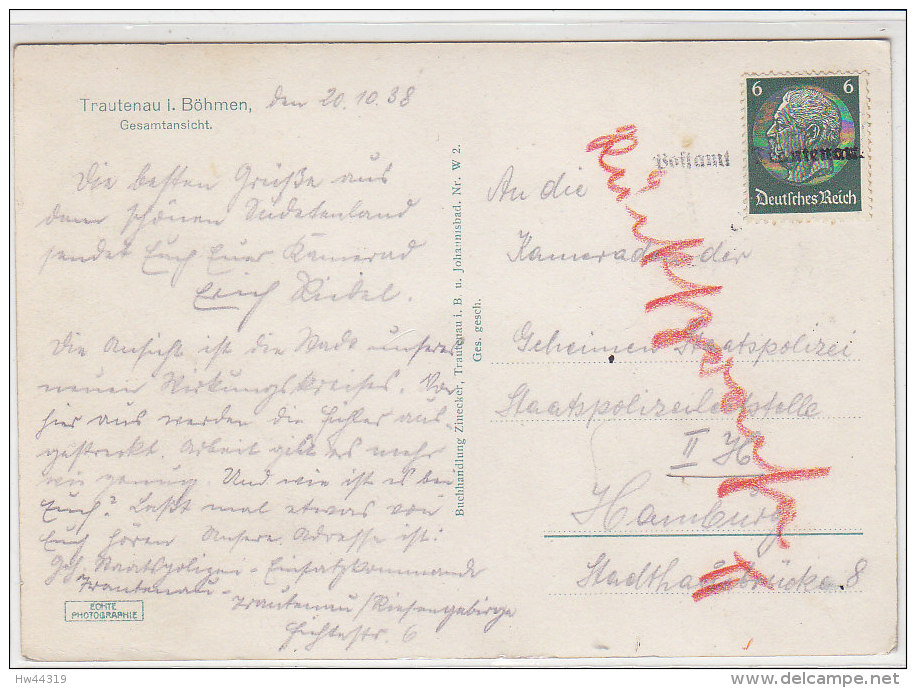 Trautenau i. Böhmen, den 20.10.38
Gesamtansicht.
Die besten Grüße aus
dem schönen Sudetenland
sendet Euch Euer Kamerad
Erich Riebel.
Die Ansicht ist die Stadt unseres
neuen Wirkungskreises. Von
hier aus werden die Fühler aus-
gestreckt. Arbeit gibt es mehr
wie genug. Und wie ist es bei
Euch? Laßt mal etwas von
Euch hören. Unsere Adresse ist:
Geh. Staatspolizei - Einsatzkommando
Trautenau -
Trautenau / Riesengebirge
Fichtestr. 6
ECHTE
PHOTOGRAPHIE
Buchhandlung Zinecker, Trautenau i. B. u. Johannisbad. Nr. W 2.
Ges. gesch.
6 6
Deutsches Reich
Postamt Trautenau.
An die
Kameraden der
Geheimen Staatspolizei
Staatspolizeileitstelle
II H
Hamburg
Stadthausbrücke 8
Hw44319
www.delcampe.net